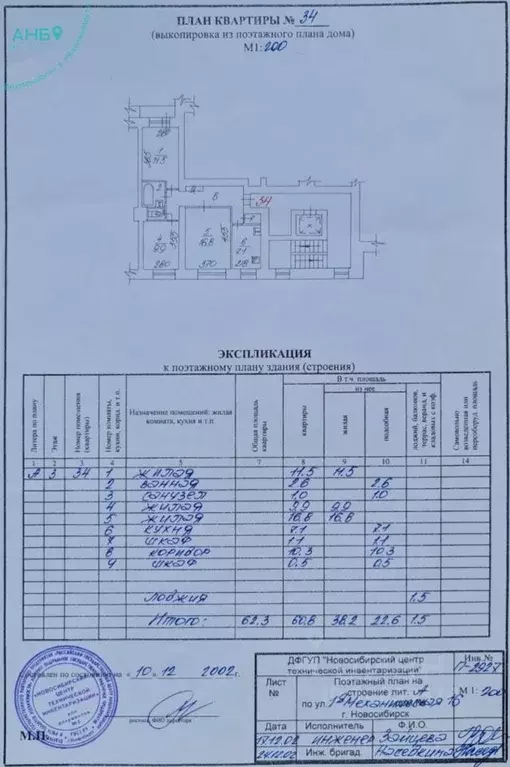 АНБ
ПЛАН КВАРТИРЫ № 34
(выкопировка из поэтажного плана дома)
М1:200
34
ЭКСПЛИКАЦИЯ
к поэтажному плану здания (строения)
Литера по плану
Этаж
Номер помещения (квартиры)
Номер комнаты, кухни, корид. и т.п.
Назначение помещений: жилая комната, кухня и т.п
Общая площадь квартиры
В т.ч. площадь
из нее
квартиры
жилая
подсобная
лоджий, балконов, террас, веранд и кладовых с коэф.
Самовольно возведенная или переоборуд. площадь
1 2 3 4 5 7 8 9 10 11 14
А 3 34 1 жилая 11.5 11.5
2 ванная 2.6 2.6
3 санузел 1.0 1.0
4 жилая 9.9 9.9
5 жилая 16.8 16.8
6 кухня 7.1 7.1
7 шкаф 1.1 1.1
8 коридор 10.3 10.3
9 шкаф 0.5 0.5
лоджия 1.5
Итого: 62.3 60.8 38.2 22.6 1.5
Составлен по состоянию на « 10 » 12 2002г.
М.П.
«НОВОСИБИРСКИЙ ЦЕНТР ТЕХНИЧЕСКОЙ ИНВЕНТАРИЗАЦИИ»
ДФГУП "Новосибирский центр технической инвентаризации"
Инв.№
П-2927
Лист №
Поэтажный план на строение лит. А
по ул. 1я Механическая 16
г. Новосибирск
М 1: 200
Дата Исполнитель Ф.И.О.
17.12.02 инженер Зайцева
24.12.02 Инж. бригад.